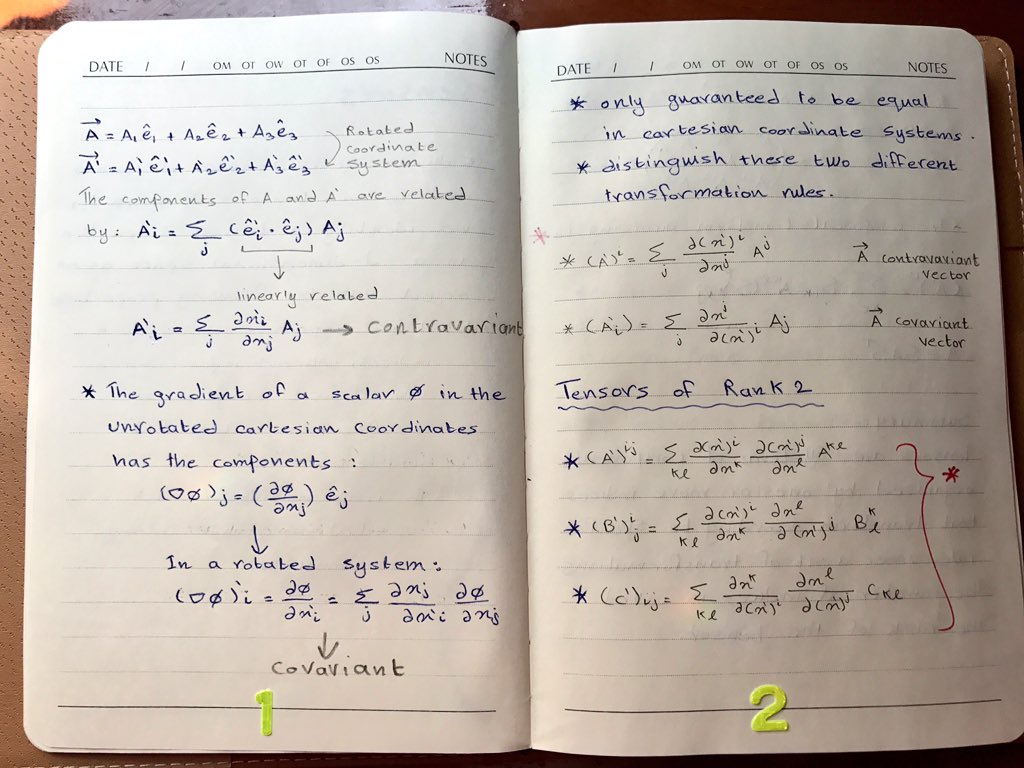 DATE / / OM OT OW OT OF OS OS NOTES
A⃗ = A₁ê₁ + A₂ê₂ + A₃ê₃
A⃗' = A'₁ê'₁ + A'₂ê'₂ + A'₃ê'₃
Rotated
coordinate
system
The components of A and A' are related
by: A'ᵢ = Σ_j (ê'ᵢ · êⱼ) Aⱼ
linearly related
A'ᵢ = Σ_j ∂x'ᵢ/∂xⱼ Aⱼ → contravariant
* The gradient of a scalar ø in the
unrotated cartesian coordinates
has the components :
(∇ø)ⱼ = (∂ø/∂xⱼ) êⱼ
In a rotated system :
(∇ø)'ᵢ = ∂ø/∂x'ᵢ = Σ_j ∂xⱼ/∂x'ᵢ ∂ø/∂xⱼ
covariant
1
DATE / / OM OT OW OT OF OS OS NOTES
* only guaranteed to be equal
in cartesian coordinate systems.
* distinguish these two different
transformation rules.
*
* (A')ⁱ = Σ_j ∂(x')ⁱ/∂xʲ Aʲ A⃗ contravariant
vector
* (A'ᵢ) = Σ_j ∂xʲ/∂(x')ⁱ Aⱼ A⃗ covariant
vector
Tensors of Rank 2
* (A')ⁱʲ = Σ_kl ∂(x')ⁱ/∂xᵏ ∂(x')ʲ/∂xˡ Aᵏˡ
*
* (B')ⁱⱼ = Σ_kl ∂(x')ⁱ/∂xᵏ ∂xˡ/∂(x')ʲ Bᵏₗ
* (C')ᵢⱼ = Σ_kl ∂xᵏ/∂(x')ⁱ ∂xˡ/∂(x')ʲ Cₖₗ
2